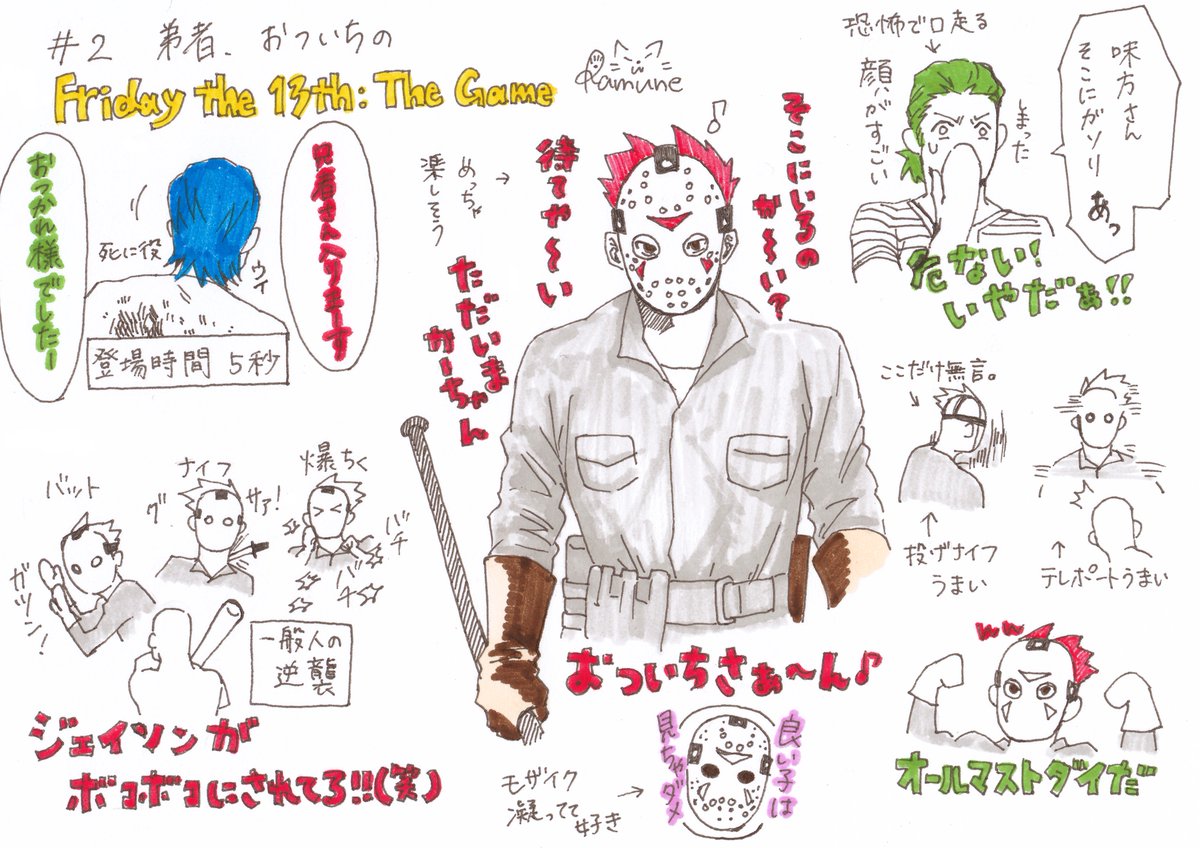 #2 弟者、おついちの
Friday the 13th: The Game
Ramune
兄者さん入りまーす
おつかれ様でしたー
死に役
ウィ
登場時間 5秒
めっちゃ
楽しそう
→
♪
そこにいるの
か〜い?
待てや〜い
ただいま
かーちゃん
恐怖で口走る
顔がすごい
しまった
味方さん
そこにガソリ
あっ
危ない!
いやだぁ!!
ここだけ無言。
投げナイフ
うまい
テレポートうまい
バット
ガツン!
ナイフ
グ
サァ!
爆ちく
バチ
バチ
一般人の
逆襲
ジェイソンが
ボコボコにされてる!!(笑)
おついちさぁ〜ん♪
モザイク
凝ってて好き
良い子は
見ちゃダメ
ww
オールマストダイだ